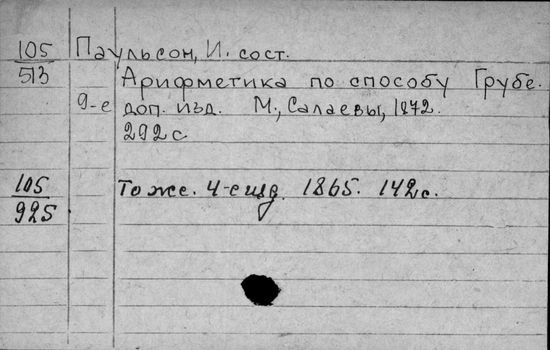 105 Паульсон, И. сост.
513 Арифметика по способу Грубе.
9-е доп. изд. М., Салаевы, 1872.
292 с.
105 То же. 4-е изд. 1865. 142 с.
925